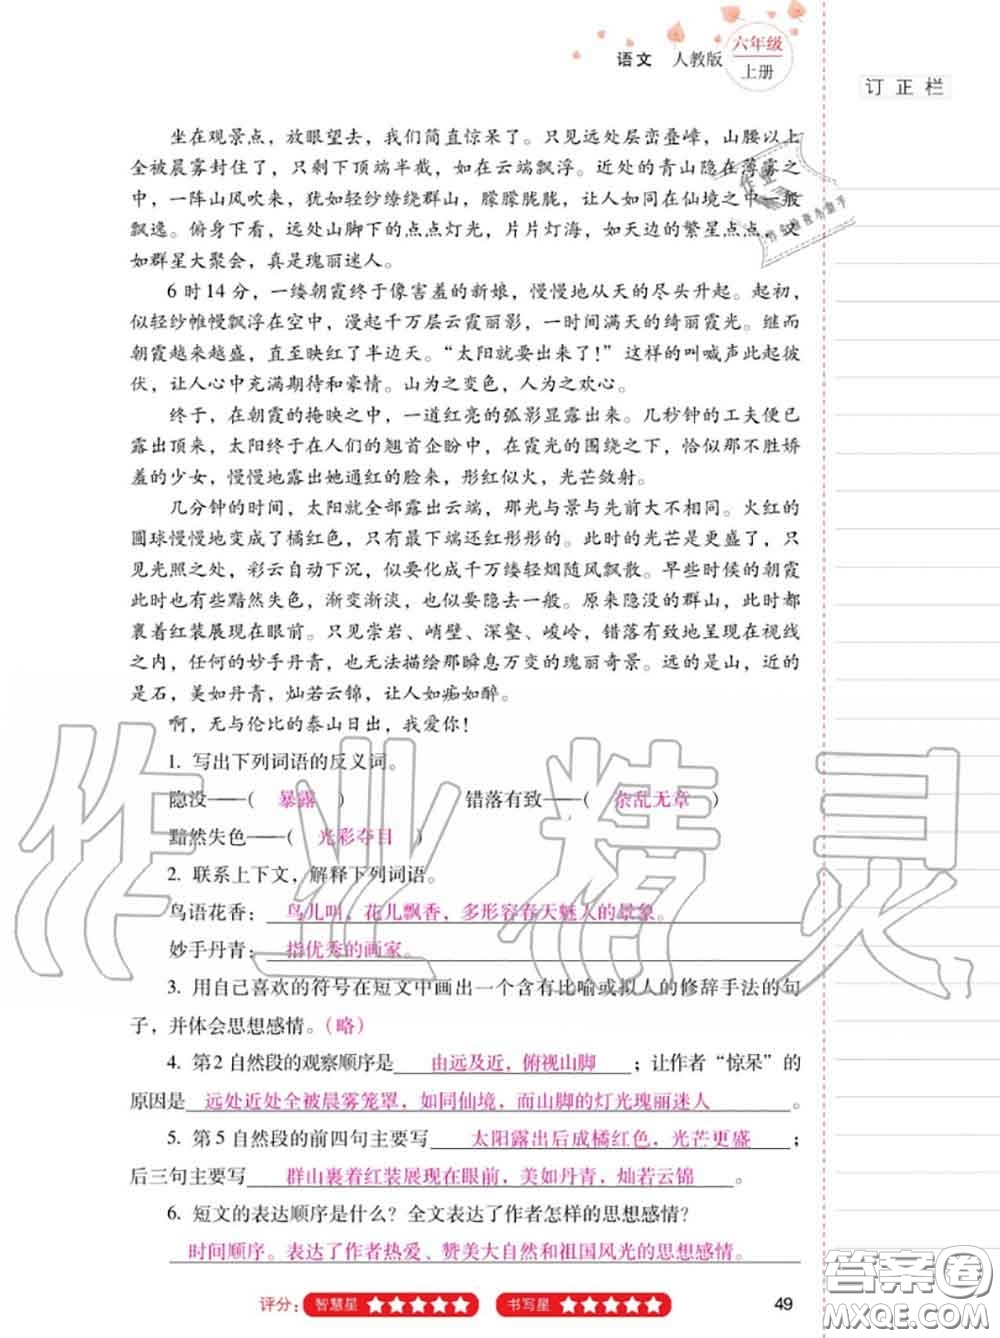 语文 人教版 六年级
上册
订正栏
坐在观景点，放眼望去，我们简直惊呆了。只见远处层峦叠嶂，山腰以上
全被晨雾封住了，只剩下顶端半截，如在云端飘浮。近处的青山隐在薄雾之
中，一阵山风吹来，犹如轻纱缭绕群山，朦朦胧胧，让人如同在仙境之中一般
飘逸。俯身下看，远处山脚下的点点灯光，片片灯海，如天边的繁星点点，又
如群星大聚会，真是瑰丽迷人。
6时14分，一缕朝霞终于像害羞的新娘，慢慢地从天的尽头升起。起初，
似轻纱帷幔飘浮在空中，漫起千万层云霞丽影，一时间满天的绮丽霞光。继而
朝霞越来越盛，直至映红了半边天。“太阳就要出来了！”这样的叫喊声此起彼
伏，让人心中充满期待和豪情。山为之变色，人为之欢心。
终于，在朝霞的掩映之中，一道红亮的弧影显露出来。几秒钟的工夫便已
露出顶来，太阳终于在人们的翘首企盼中，在霞光的围绕之下，恰似那不胜娇
羞的少女，慢慢地露出她通红的脸来，形红似火，光芒敛射。
几分钟的时间，太阳就全部露出云端，那光与景与先前大不相同。火红的
圆球慢慢地变成了橘红色，只有最下端还红彤彤的。此时的光芒更盛了，只
见光照之处，彩云自动下沉，似要化成千万缕轻烟随风飘散。早些时候的朝霞
此时也有些黯然失色，渐变渐淡，也似要隐去一般。原来隐没的群山，此时都
裹着红装展现在眼前。只见崇岩、峭壁、深壑、峻岭，错落有致地呈现在视线
之内，任何的妙手丹青，也无法描绘那瞬息万变的瑰丽奇景。远的是山，近的
是石，美如丹青，灿若云锦，让人如痴如醉。
啊，无与伦比的泰山日出，我爱你！
1. 写出下列词语的反义词。
隐没——（ 暴露 ） 错落有致——（ 杂乱无章 ）
黯然失色——（ 光彩夺目 ）
2. 联系上下文，解释下列词语。
鸟语花香：鸟儿叫，花儿飘香，多形容春天魅人的景象。
妙手丹青：指优秀的画家。
3. 用自己喜欢的符号在短文中画出一个含有比喻或拟人的修辞手法的句
子，并体会思想感情。（略）
4. 第2自然段的观察顺序是 由远及近，俯视山脚 ；让作者“惊呆”的
原因是 远处近处全被晨雾笼罩，如同仙境，而山脚的灯光瑰丽迷人 。
5. 第5自然段的前四句主要写 太阳露出后成橘红色，光芒更盛 ；
后三句主要写 群山裹着红装展现在眼前，美如丹青，灿若云锦 。
6. 短文的表达顺序是什么？全文表达了作者怎样的思想感情？
时间顺序。表达了作者热爱、赞美大自然和祖国风光的思想感情。
评分： 智慧星 ★★★★★ 书写星 ★★★★★ 49
作业精灵
答案圈
MXQE.COM